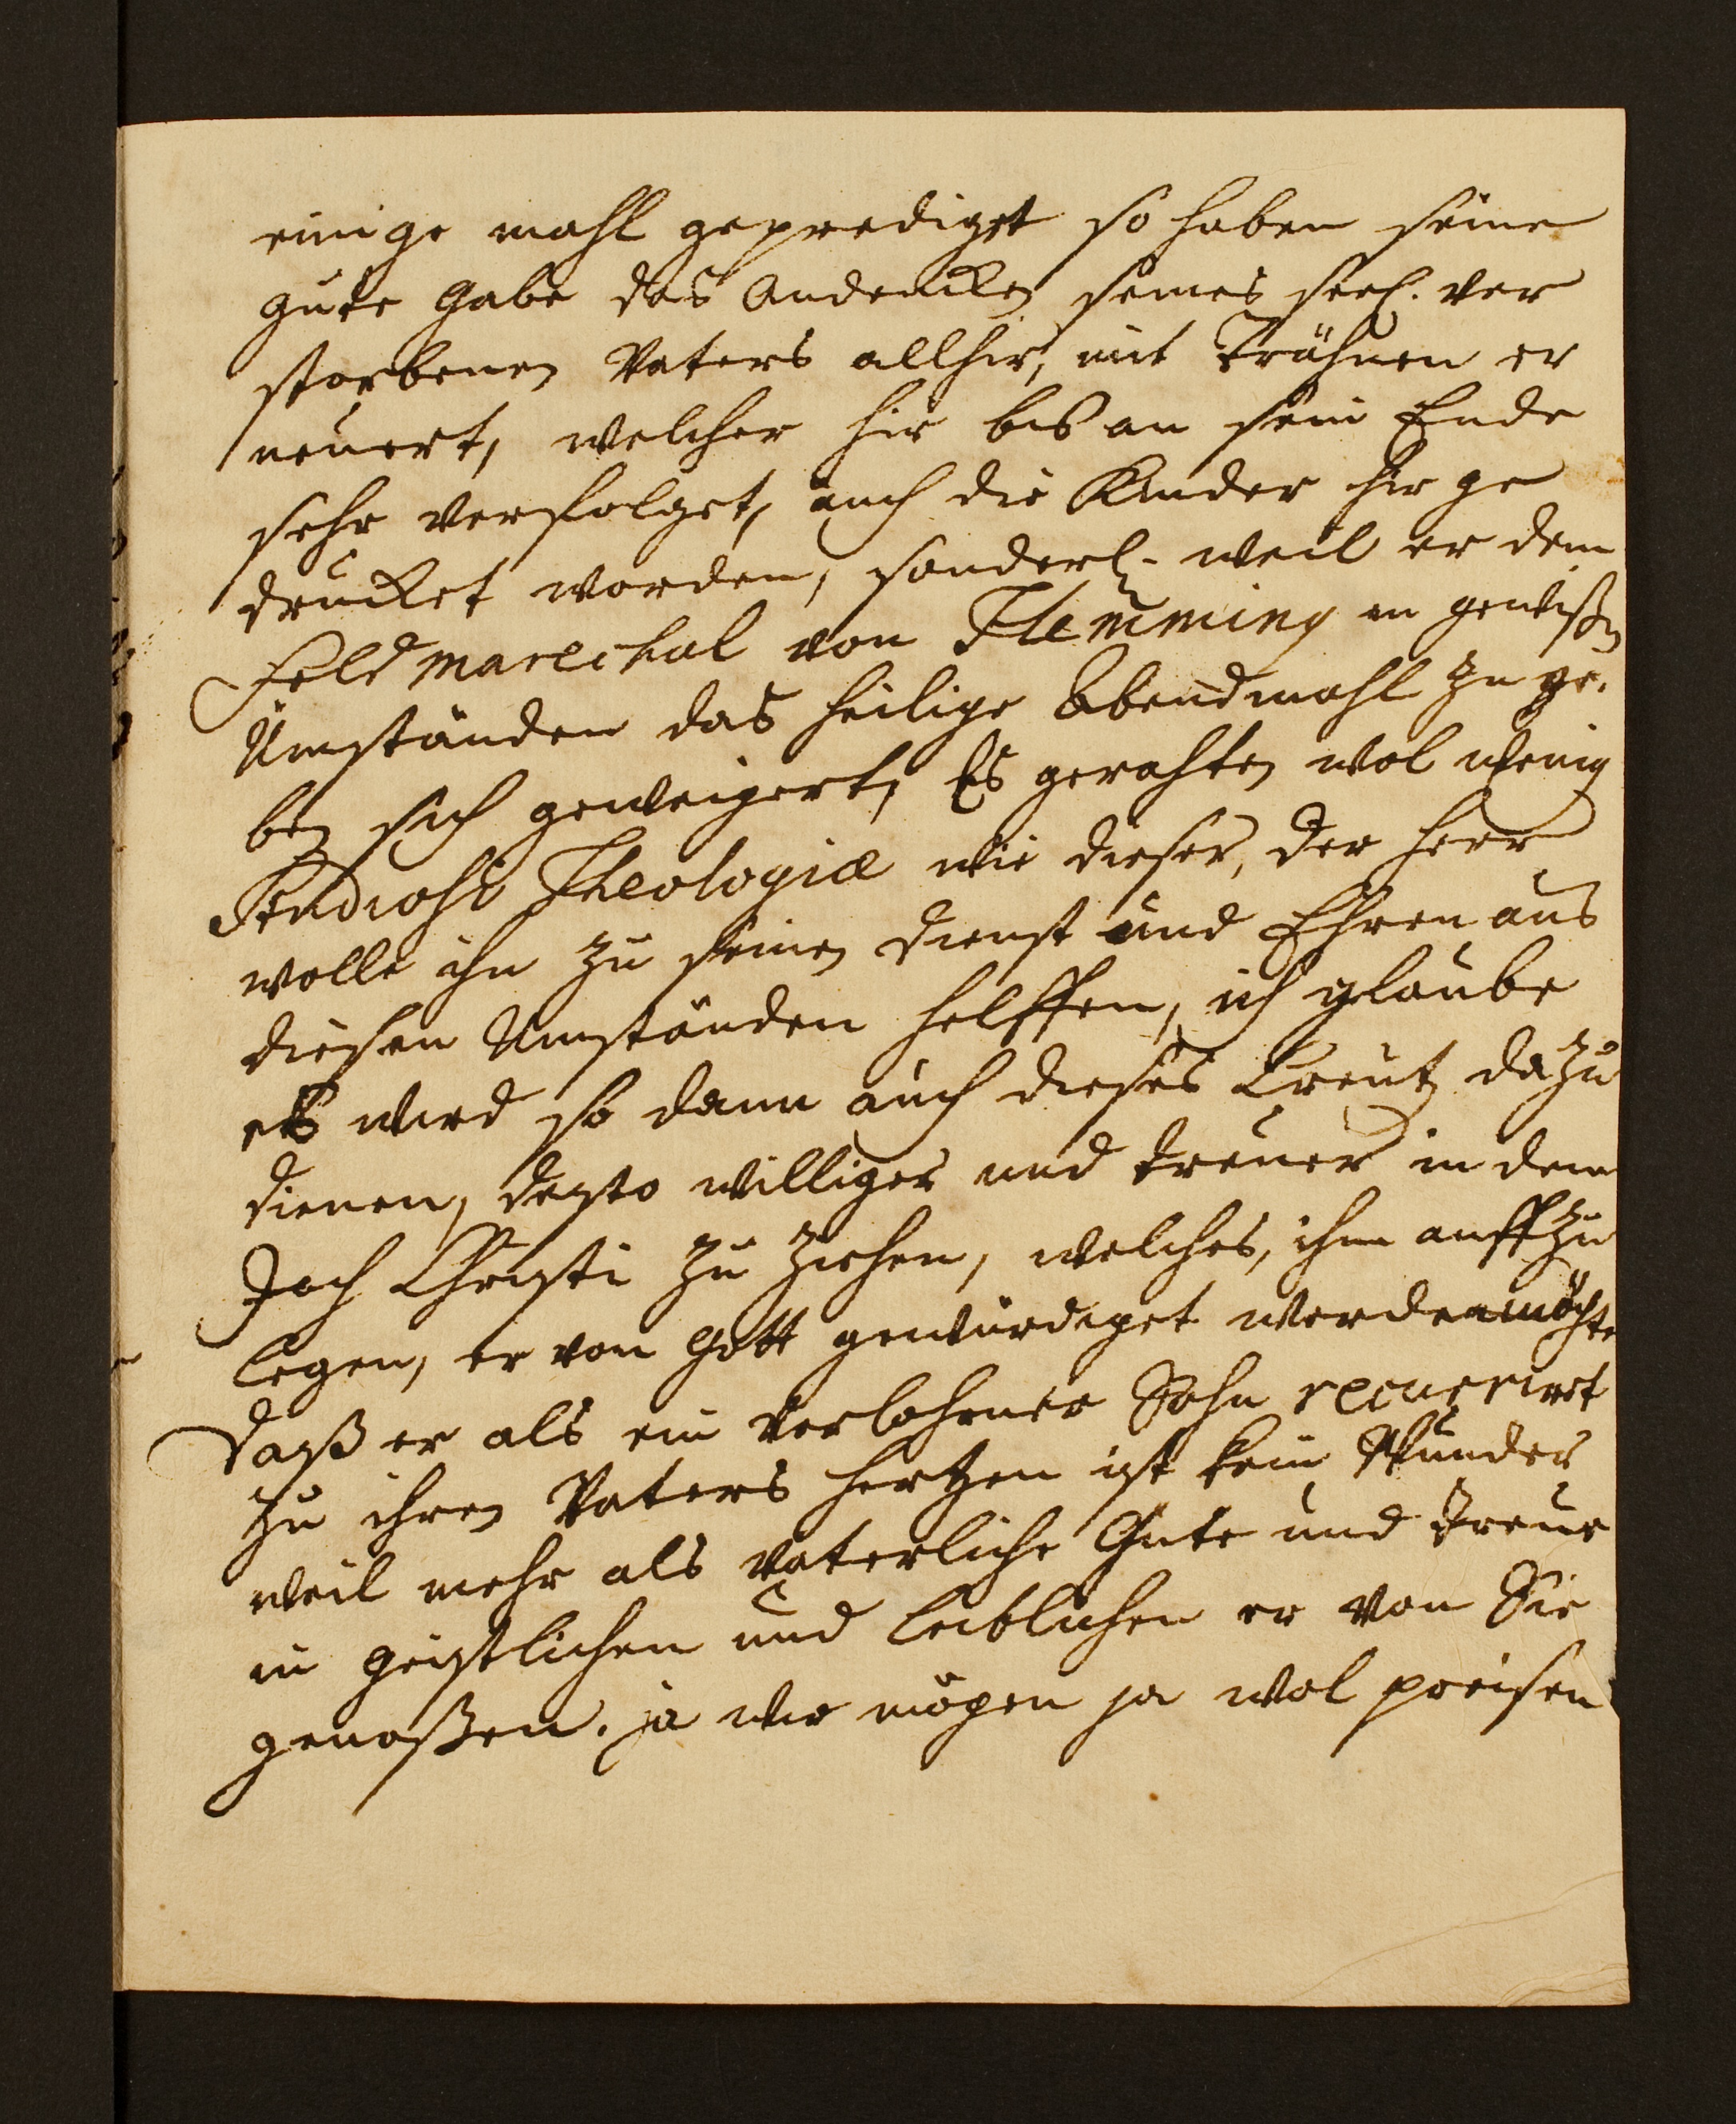 einige mahl geprediget so haben seine
gute Gabe das Andencken seines seel. ver
storbenen Vaters allhir, mit Trähnen er
neuert, welcher hir bis an sein Ende
sehr verfolget, auch die Kinder hir ge
drucket worden, sonderl. weil er dem
Feld Marechal von Flemming in gewißen
Umständen das heilige Abendmahl zu ge,
ben sich geweigert, Es gerahten wol wenig
Studiosi Theologiæ wie dieser, der Herr
wolle ihn zu seinen Dienst und Ehren aus
diesen Umständen helffen, ich glaube
es wird so dann auch dieses Creutz dazu
dienen, desto williger und treuer in dem
Joch Christi zu ziehen, welches, ihm auffzu
legen, er von Gott gewürdiget werden möchte
daß er als ein verlohrner Sohn recurrirt
zu ihren Vaters Hertzen ist kein Wunder
weil mehr als vaterliche Gute und treue
in geistlichen und leiblichen er von Sie
genoßen. ja wir mögen ja wol preisen